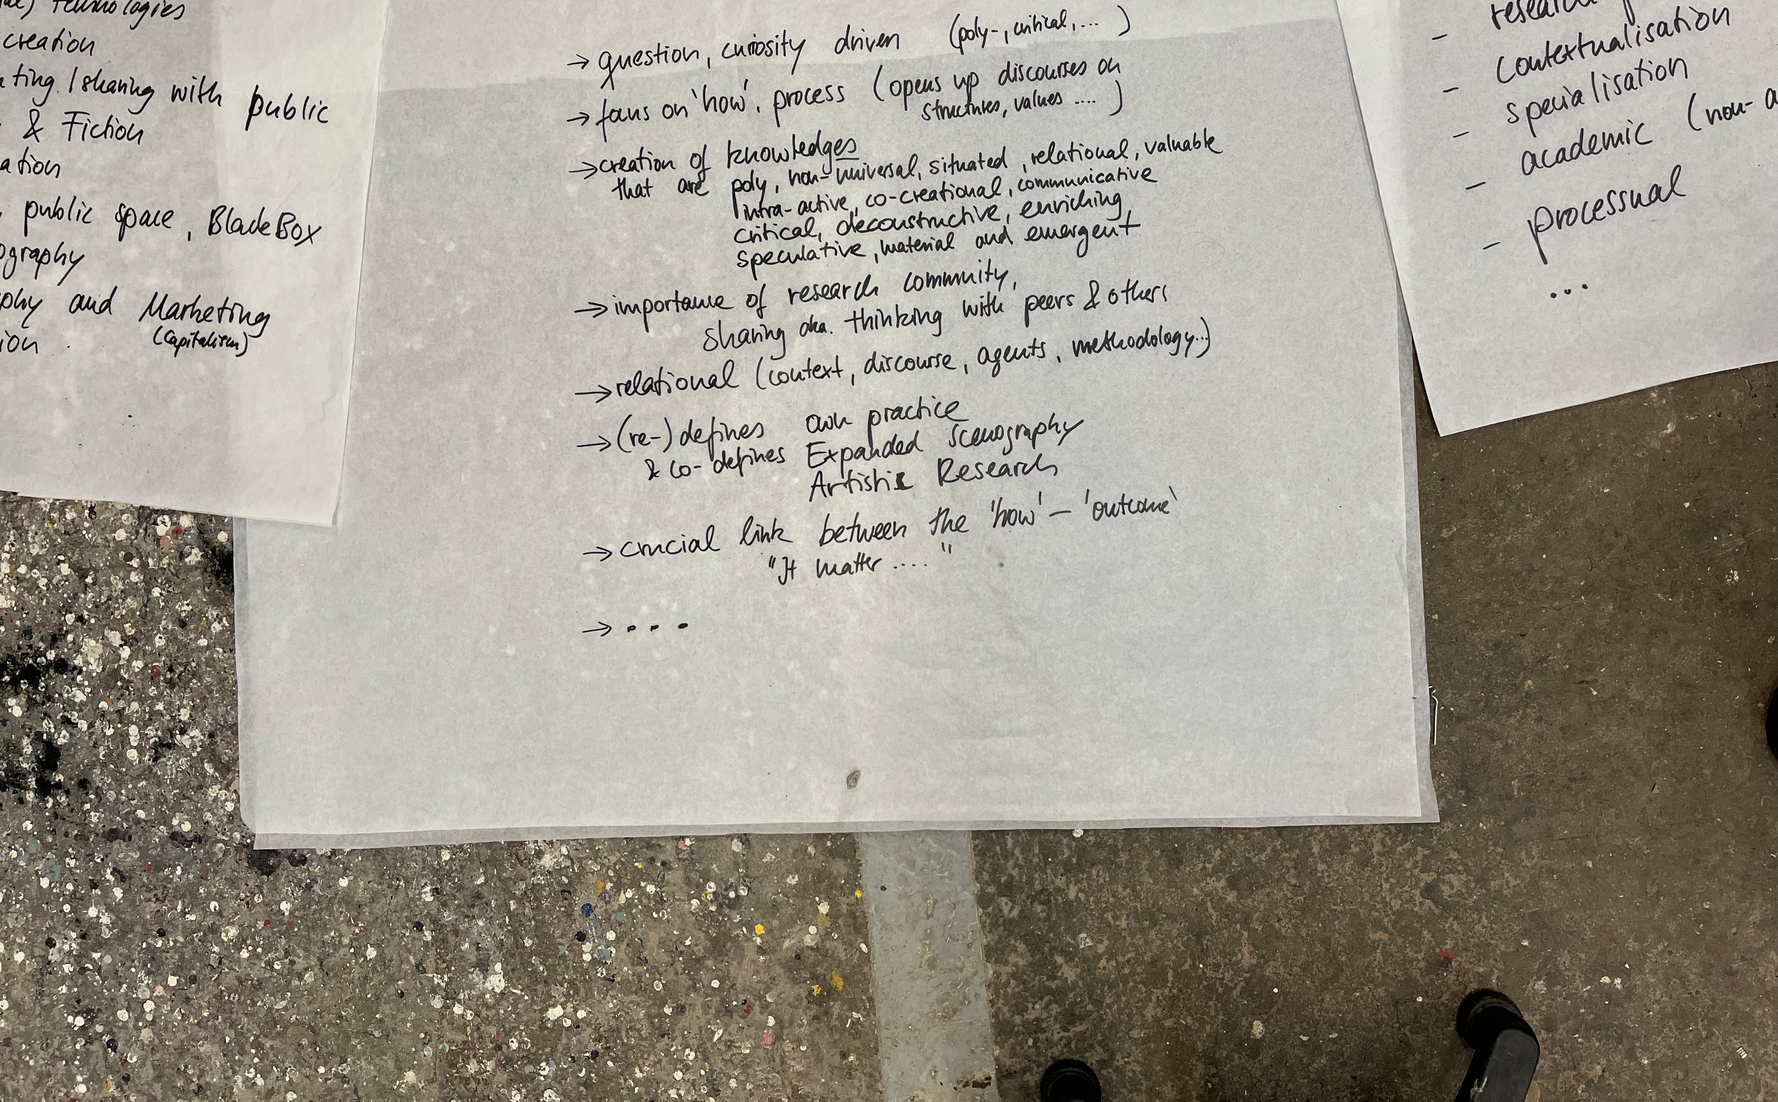 technologies
creation
sharing with public
& Fiction
public space, BladeBox
and Marketing
(Capitalism)
→ question, curiosity driven (poly-, critical, ... )
→ focus on 'how', process (opens up discourses on
structures, values .... )
→ creation of knowledges
that are poly, non-universal, situated, relational, valuable
intra-active, co-creational, communicative
critical, deconstructive, enriching,
speculative, material and emergent
→ importance of research community,
sharing aka. thinking with peers & others
→ relational (context, discourse, agents, methodology...)
→ (re-)defines own practice
& co-defines Expanded Scenography
Artistic Research
→ crucial link between the 'how' – 'outcome'
"It matter .... "
→ • • •
- contextualisation
- specialisation
- academic (non-
- processual
...